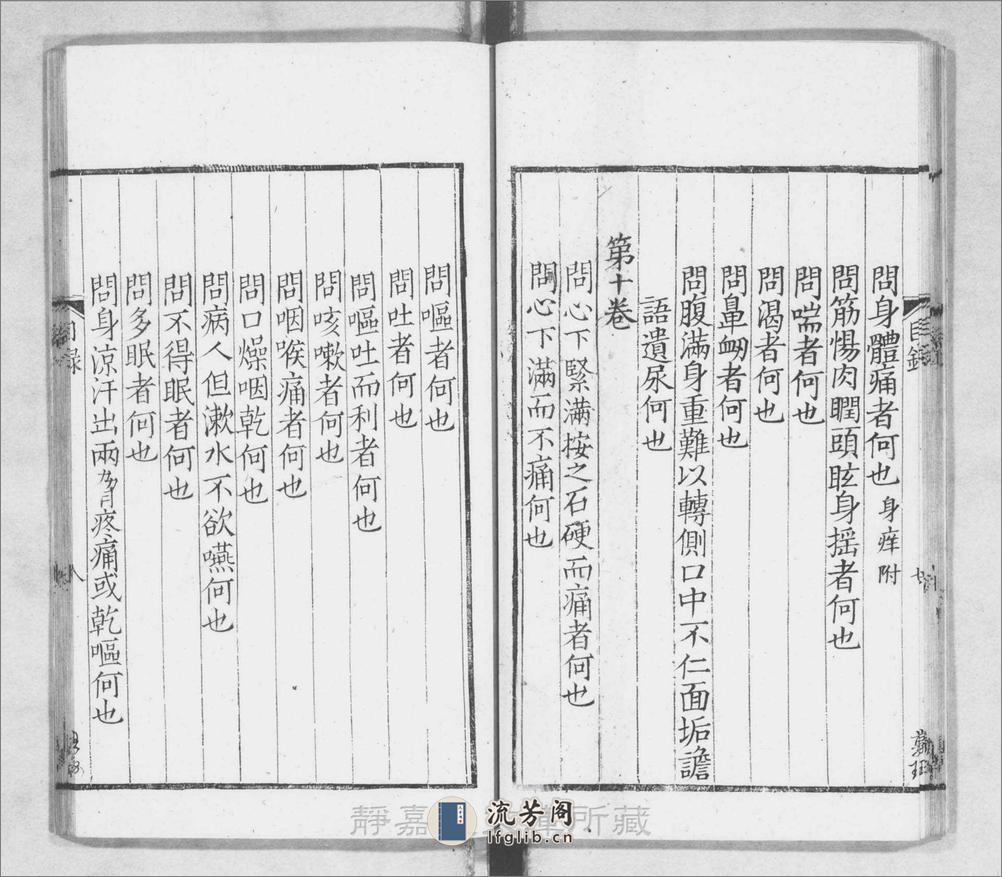 問身體痛者何也 身痒附
問筋惕肉瞤頭眩身揺者何也
問喘者何也
問渴者何也
問鼻衂者何也
問腹滿身重難以轉側口中不仁面垢譫
語遺尿何也
第十卷
問心下緊滿按之石硬而痛者何也
問心下滿而不痛何也
目錄
問嘔者何也
問吐者何也
問嘔吐而利者何也
問咳嗽者何也
問咽喉痛者何也
問口燥咽乾何也
問病人但漱水不欲嚥何也
問不得眠者何也
問多眠者何也
問身涼汗出兩脅疼痛或乾嘔何也
目録
八
靜嘉
所藏
流芳阁
lfglib.cn